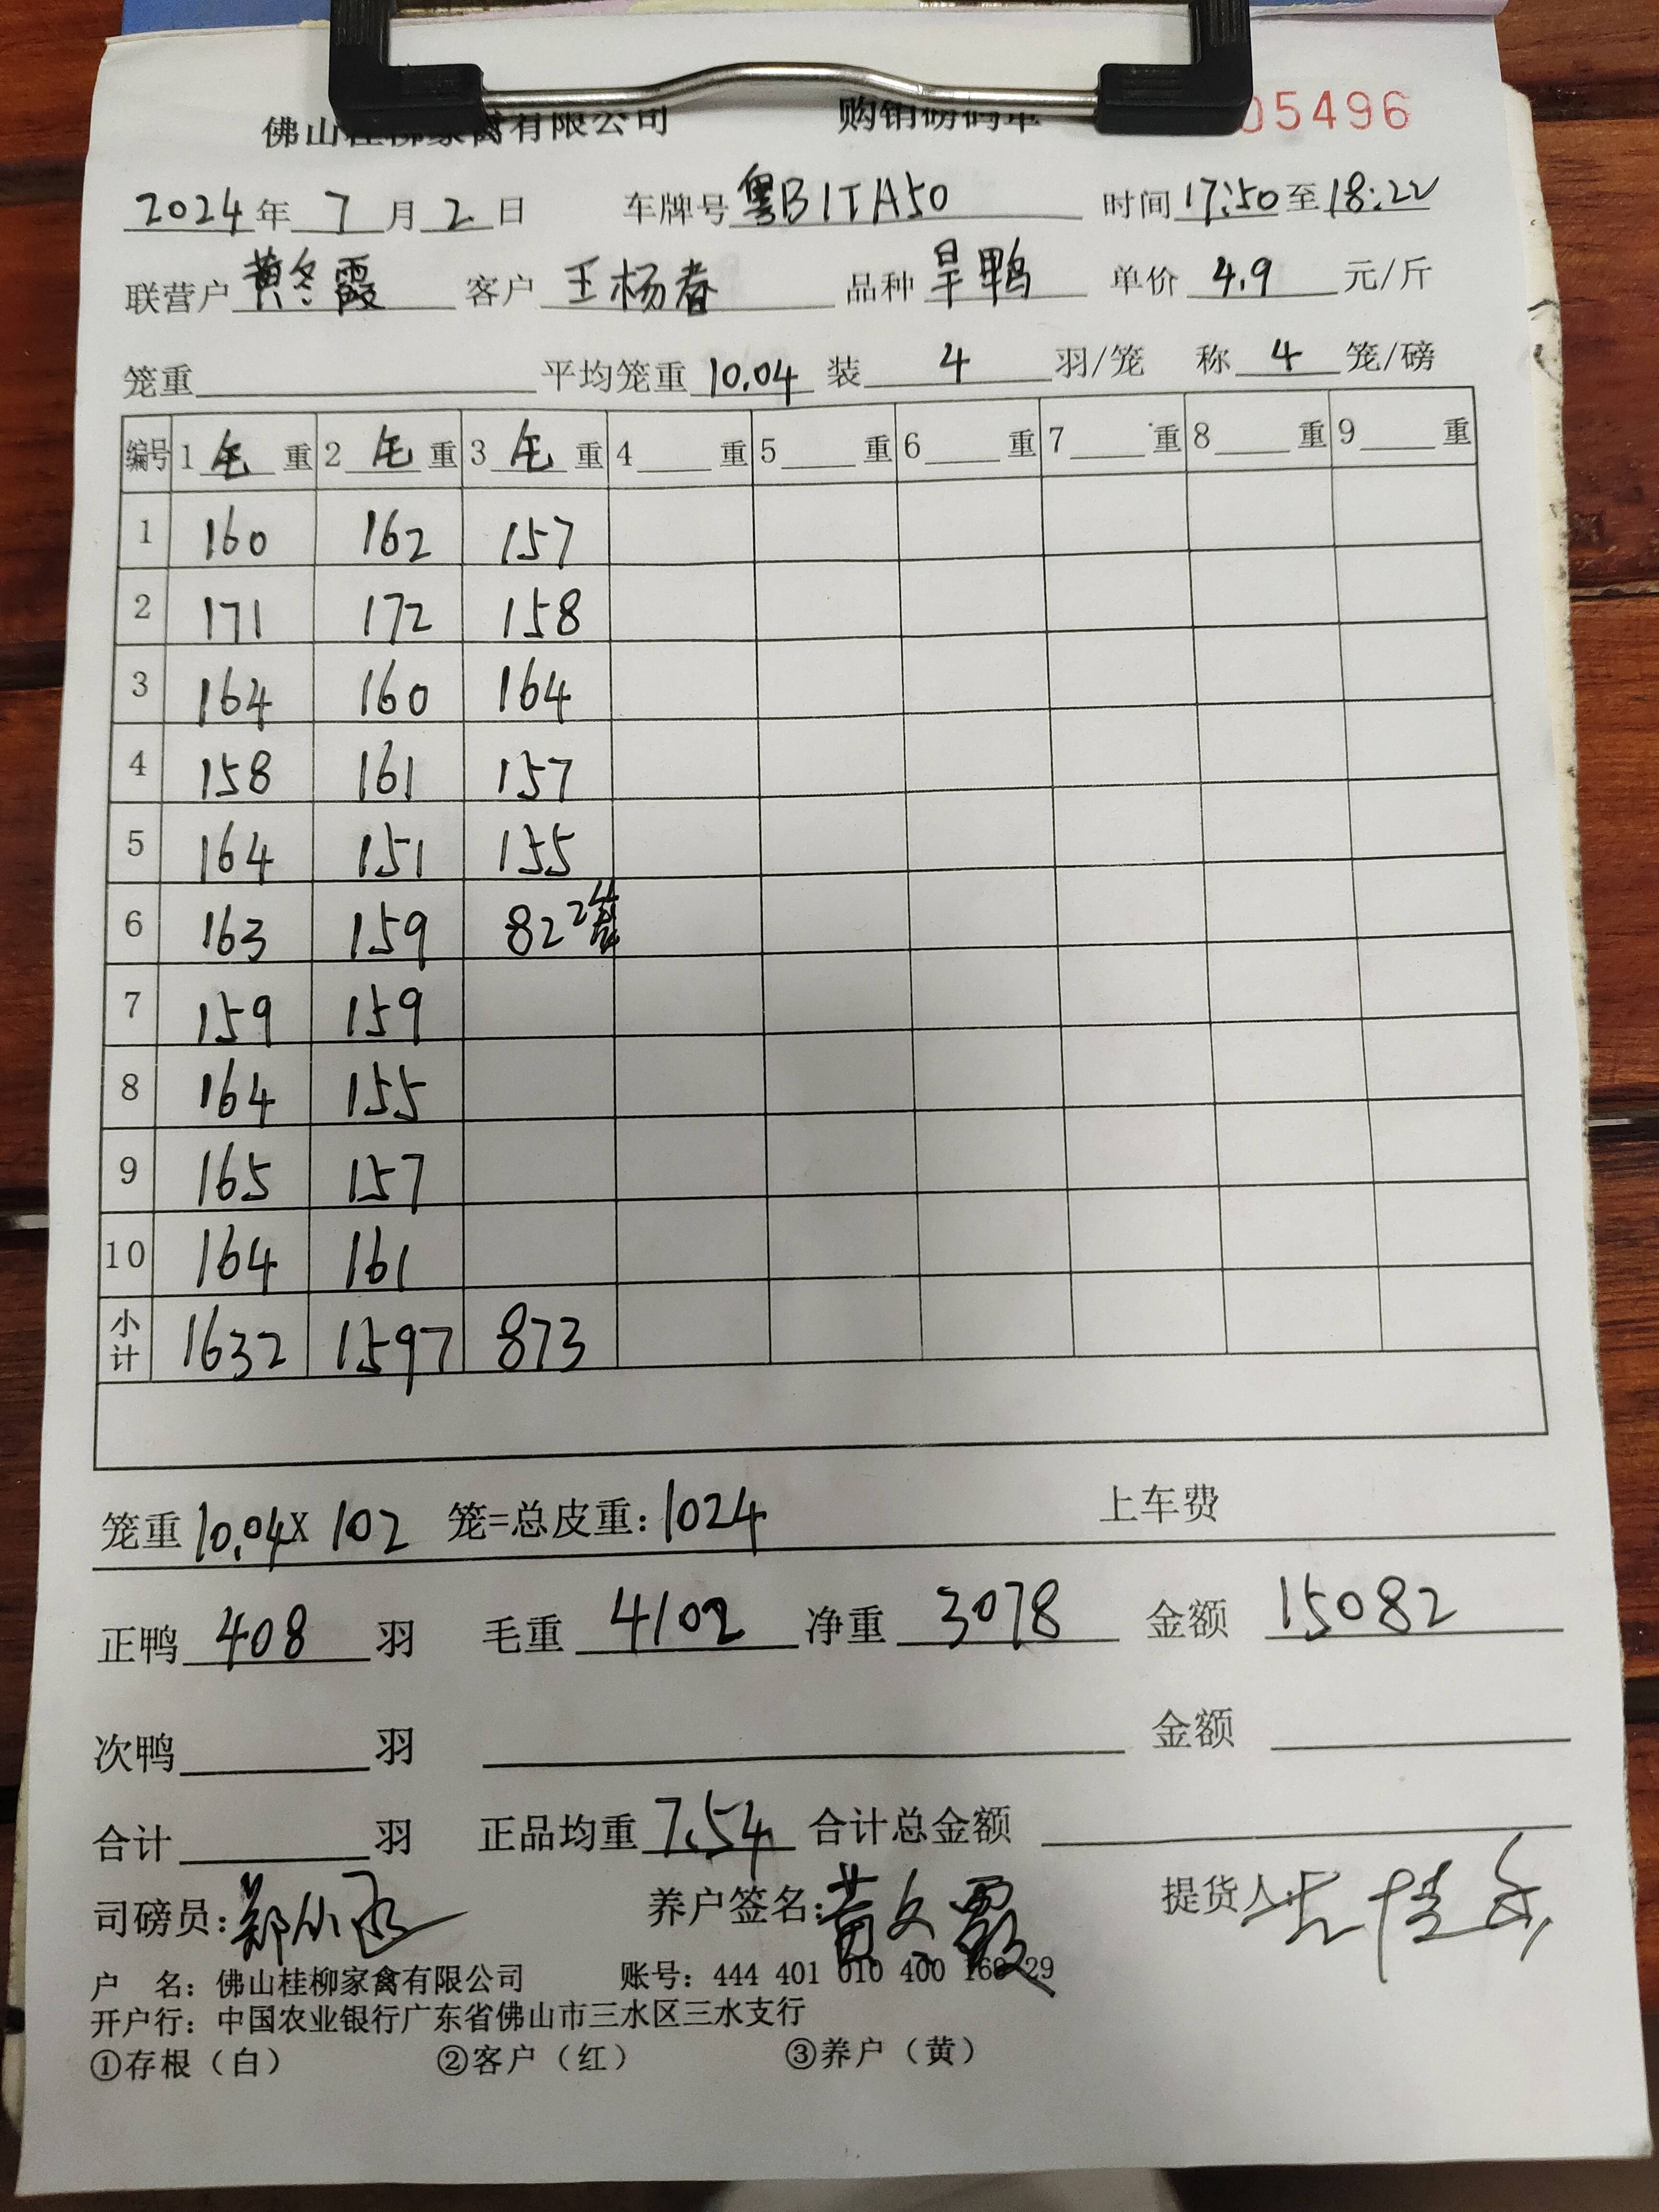 佛山桂柳家禽有限公司 购销磅码单 05496
2024年 7月2日 车牌号 粤B1TA50 时间17:50至18:22
联营户 黄冬霞 客户 王杨春 品种 旱鸭 单价 4.9 元/斤
笼重 平均笼重 10.04 装 4 羽/笼 称 4 笼/磅
编号 1 毛 重 2 毛 重 3 毛 重 4 重 5 重 6 重 7 重 8 重 9 重
1 160 162 157
2 171 172 158
3 164 160 164
4 158 161 157
5 164 151 155
6 163 159 82 2笼
7 159 159
8 164 155
9 165 157
10 164 161
小计 1632 1597 873
笼重 10.04 X 102 笼=总皮重: 1024 上车费
正鸭 408 羽 毛重 4102 净重 3078 金额 15082
次鸭 羽 金额
合计 羽 正品均重 7.54 合计总金额
司磅员: 养户签名: 提货人:
户 名: 佛山桂柳家禽有限公司 账号: 444 401 010 400 160 29
开户行: 中国农业银行广东省佛山市三水区三水支行
①存根（白） ②客户（红） ③养户（黄）